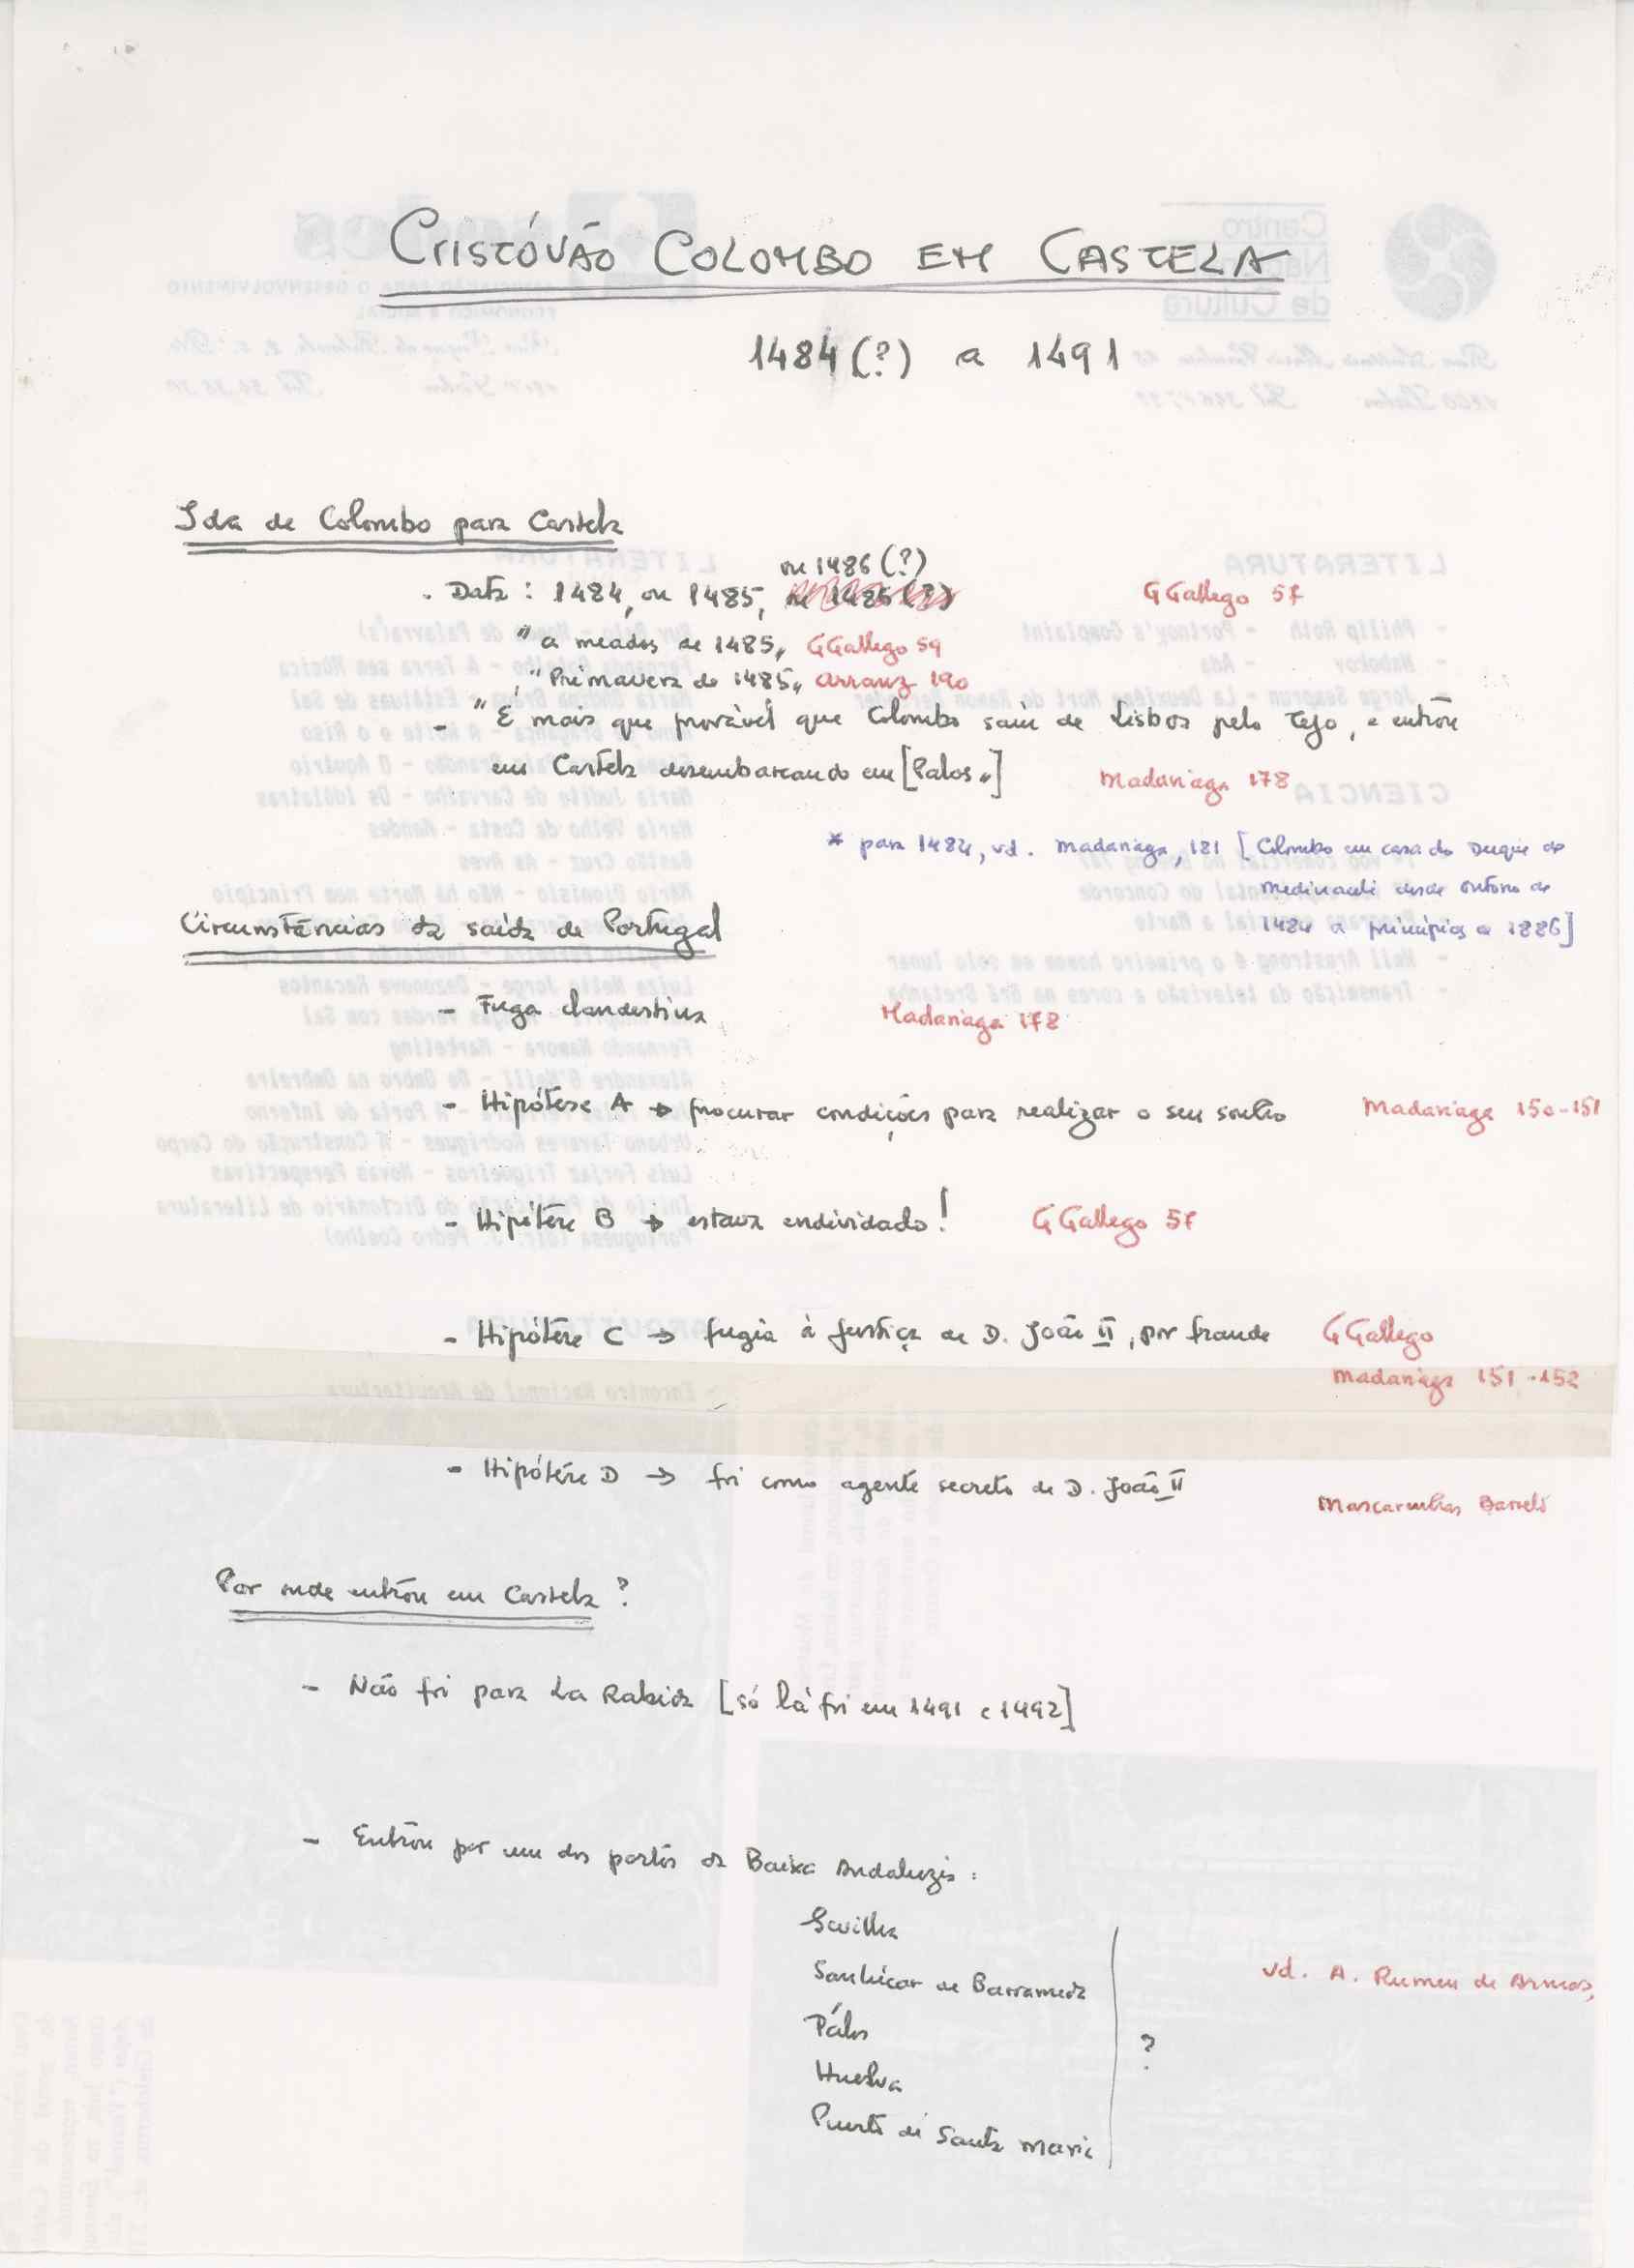 CRISTÓVÃO COLOMBO EM CASTELA
1484(?) a 1491
Ida de Colombo para Castela
ou 1486(?)
. Data : 1484, ou 1485, ou 1486(?) GGallego 57
"a meados de 1485" GGallego 59
"Primavera de 1485" Arranz 190
- "É mais que provável que Colombo saiu de Lisboa pelo Tejo, e entrou
em Castela desembarcando em [Palos"] Madariaga 178
* para 1484, vd. Madariaga, 181 [Colombo em casa do Duque de
Medinaceli desde outono de
1484 a princípios de 1886]
Circunstâncias da saída de Portugal
- Fuga clandestina Madariaga 178
- Hipótese A → procurar condições para realizar o seu sonho Madariaga 150-151
- Hipótese B → estava endividado! GGallego 57
- Hipótese C → fugia à justiça de D. João II, por fraude GGallego
Madariaga 151-152
- Hipótese D → foi como agente secreto de D. João II
Mascarenhas Barreto
Por onde entrou em Castela ?
- Não foi para La Rabida [só lá foi em 1491 e 1492]
- Entrou por um dos portos da Baixa Andaluzia :
Sevilha
Sanlúcar de Barrameda
Palos
Huelva
Puerto de Santa Maria
?
vd. A. Rumeu de Armas,